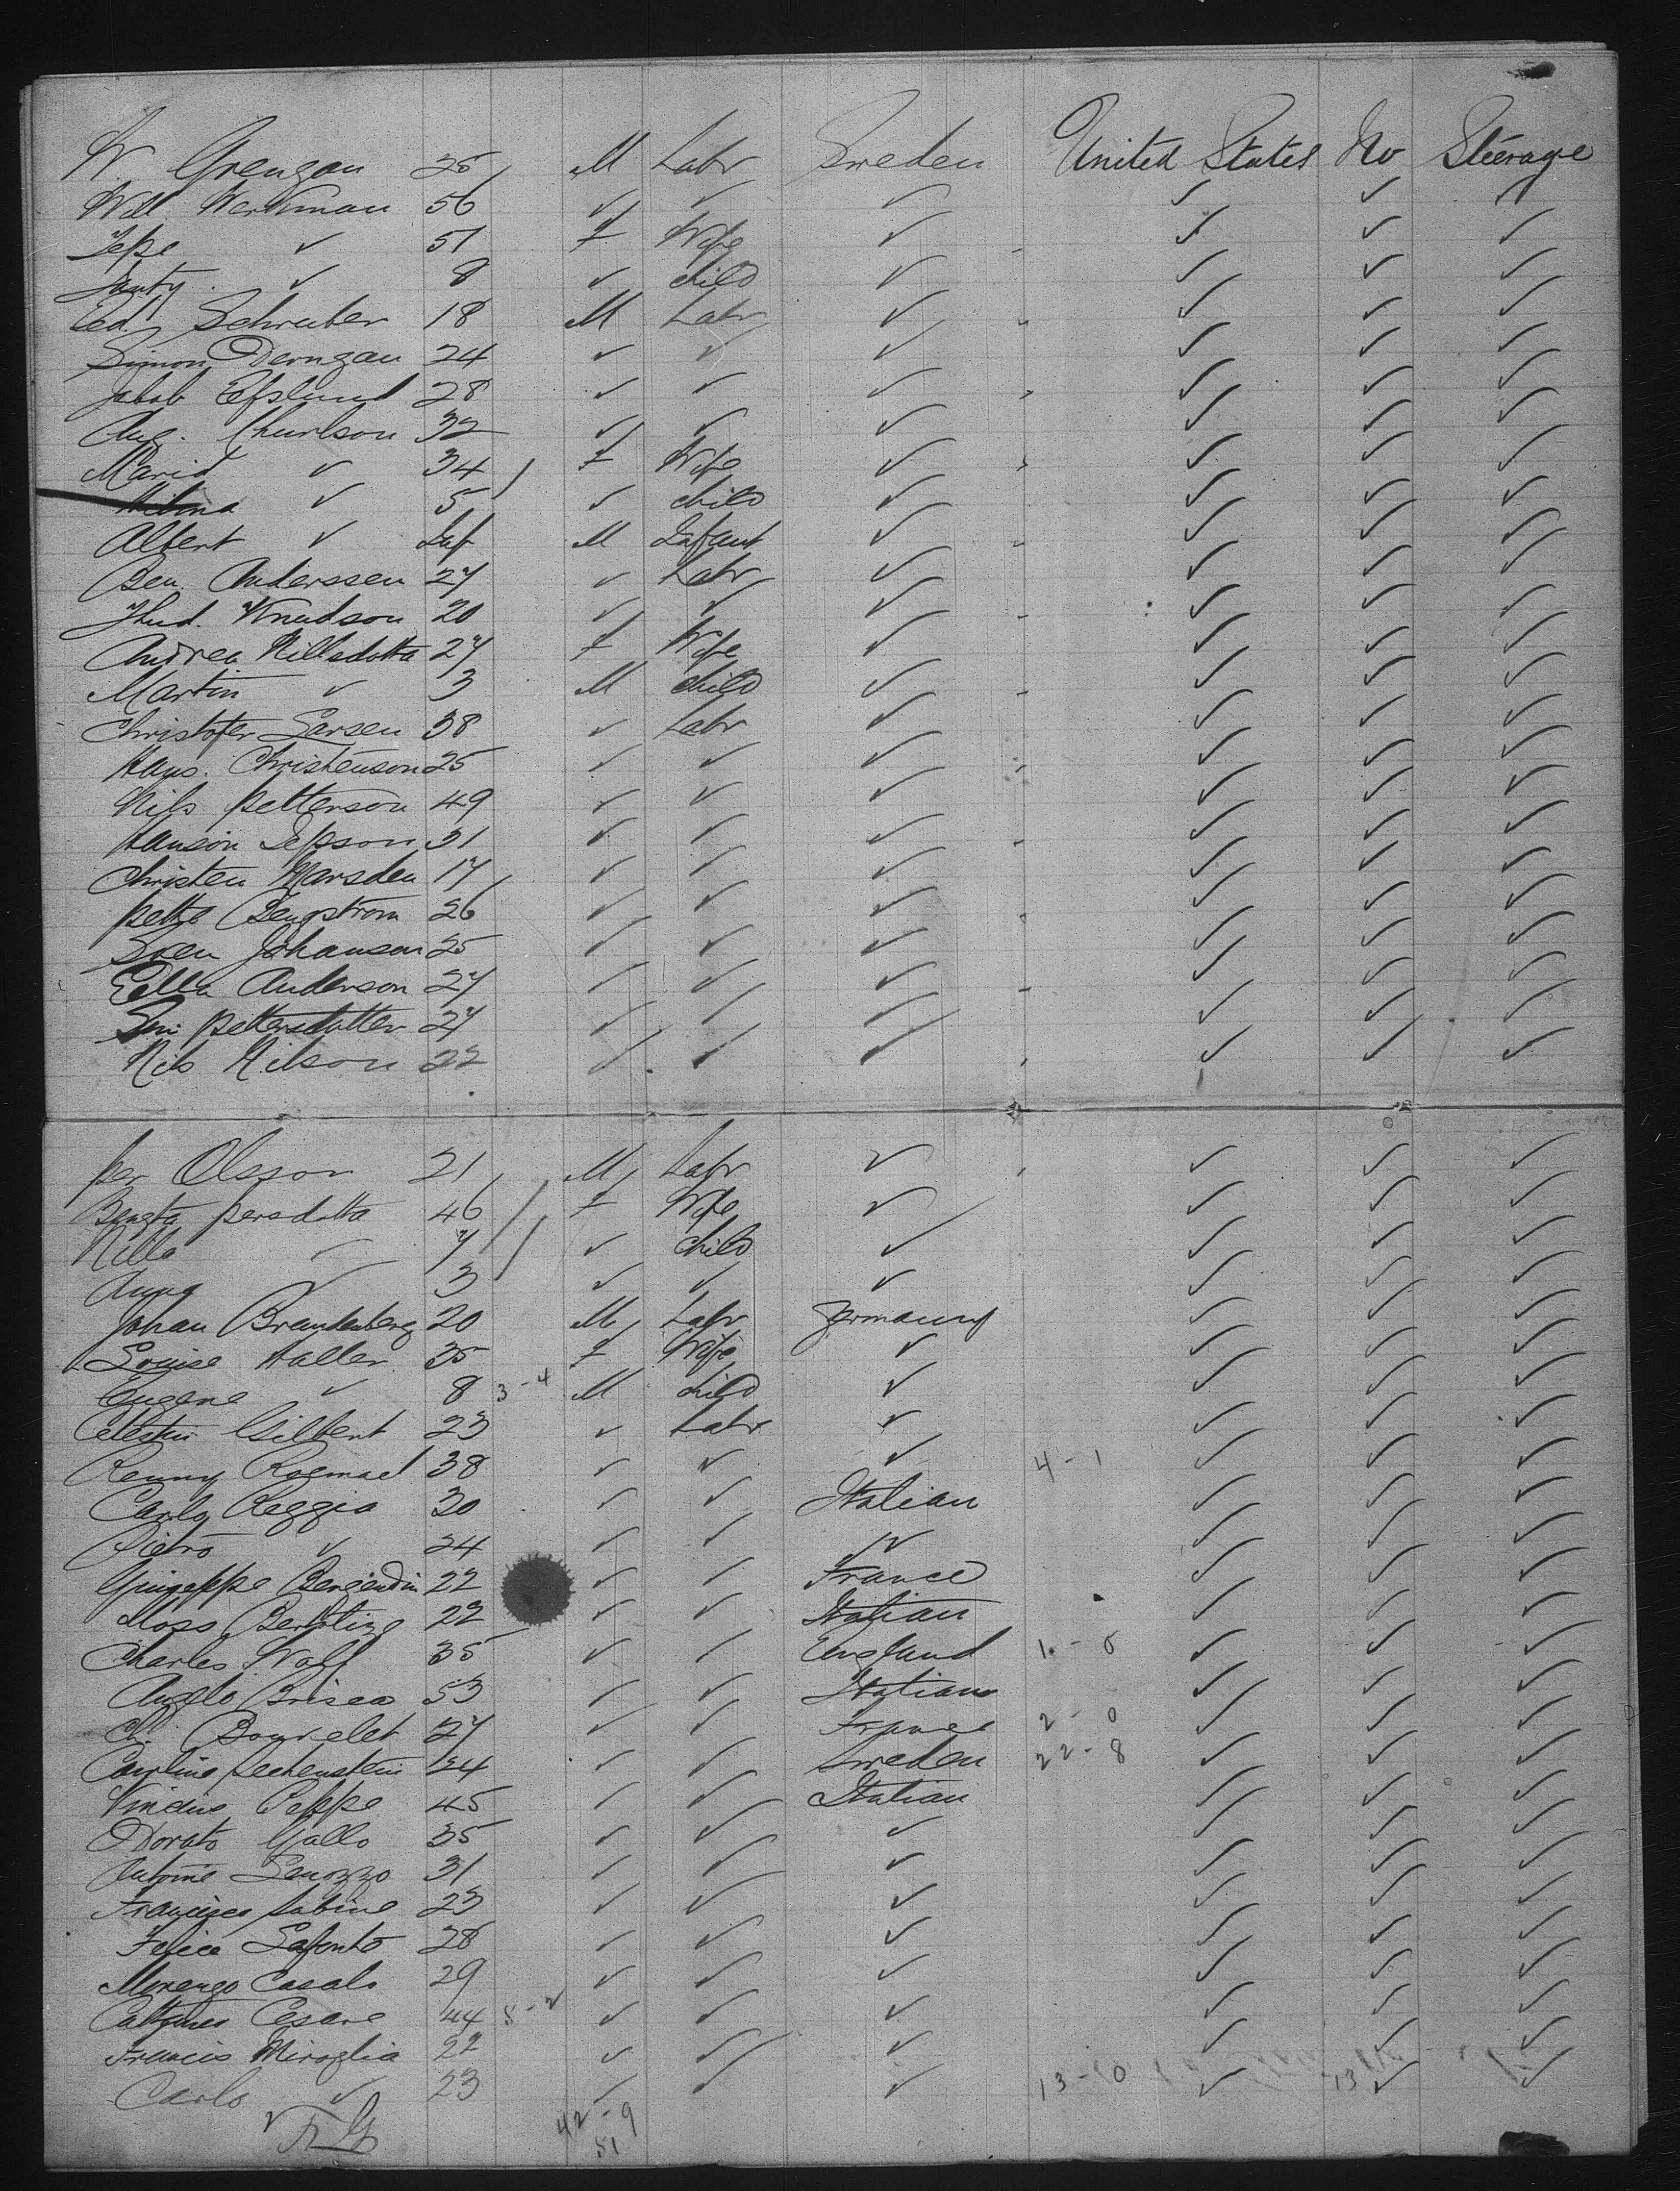 W. Grengan 25 M Labr Sweden United States No Steerage
Will Werkman 56 ✓ ✓ ✓ ✓ ✓ ✓
✓ 51 F Wife ✓ ✓ ✓ ✓
✓ 8 ✓ child ✓ ✓ ✓ ✓
Ed. Schreuber 18 M Labr ✓ ✓ ✓ ✓
Simon 24 ✓ ✓ ✓ ✓ ✓ ✓
Jakob 28 ✓ ✓ ✓ ✓ ✓ ✓
Aug. Churlson 32 ✓ ✓ ✓ ✓ ✓ ✓
Marid ✓ 34 F Wife ✓ ✓ ✓ ✓
✓ 5 ✓ child ✓ ✓ ✓ ✓
Albert ✓ Inf M Infant ✓ ✓ ✓ ✓
Ben. Anderssen 27 ✓ Labr ✓ ✓ ✓ ✓
Knudson 20 ✓ ✓ ✓ ✓ ✓ ✓
Andrea Nillsdotta 27 F Wife ✓ ✓ ✓ ✓
Martin ✓ 3 M child ✓ ✓ ✓ ✓
Christofer Larsen 38 ✓ Labr ✓ ✓ ✓ ✓
Hans. Christenson 25 ✓ ✓ ✓ ✓ ✓ ✓
Nils Petterson 49 ✓ ✓ ✓ ✓ ✓ ✓
Hanson Jepson 31 ✓ ✓ ✓ ✓ ✓ ✓
Christen Marsden 17 ✓ ✓ ✓ ✓ ✓ ✓
Bengstrom 26 ✓ ✓ ✓ ✓ ✓ ✓
Sven Johanson 25 ✓ ✓ ✓ ✓ ✓ ✓
Anderson 27 ✓ ✓ ✓ ✓ ✓ ✓
Pettersdatter 27 ✓ ✓ ✓ ✓ ✓ ✓
Nils Nilson 22 ✓ ✓ ✓ ✓ ✓ ✓
Per Olsson 21 M Labr ✓ ✓ ✓ ✓
Bengta Persdotta 46 F Wife ✓ ✓ ✓ ✓
Nilla ✓ 7 ✓ child ✓ ✓ ✓ ✓
Anna ✓ 3 ✓ ✓ ✓ ✓ ✓ ✓
Johan Brandenberg 20 M Labr Germany ✓ ✓ ✓
Louise Haller 35 F Wife ✓ ✓ ✓ ✓
Eugene ✓ 8 3-4 M child ✓ ✓ ✓ ✓
Celestin Gilbert 23 ✓ Labr ✓ ✓ ✓ ✓
38 ✓ ✓ ✓ 4-1 ✓ ✓ ✓
Carlo Reggio 30 ✓ ✓ Italian ✓ ✓ ✓
Pietro ✓ 24 ✓ ✓ ✓ ✓ ✓ ✓
Guiseppe 22 ✓ ✓ France ✓ ✓ ✓
Moss 22 ✓ ✓ Italian ✓ ✓ ✓
Charles Wolf 35 ✓ ✓ England 1-0 ✓ ✓ ✓
Angelo Brisea 53 ✓ ✓ Italian ✓ ✓ ✓
Ch. Bourelet 27 ✓ ✓ France 2-0 ✓ ✓ ✓
Caroline Lechenstein 24 ✓ ✓ Sweden 22-8 ✓ ✓ ✓
Peppe 45 ✓ ✓ Italian ✓ ✓ ✓
Dorato Gallo 35 ✓ ✓ ✓ ✓ ✓ ✓
Antonie Lenozzo 31 ✓ ✓ ✓ ✓ ✓ ✓
Francisco Sabine 23 ✓ ✓ ✓ ✓ ✓ ✓
Felice Lafonto 28 ✓ ✓ ✓ ✓ ✓ ✓
Casals 29 ✓ ✓ ✓ ✓ ✓ ✓
Cesare 44 ✓ ✓ ✓ ✓ ✓ ✓
Francis Miroglia 22 ✓ ✓ ✓ ✓ ✓ ✓
Carlo ✓ 23 ✓ ✓ ✓ 13-0 ✓ 13 ✓ ✓
42-9
51